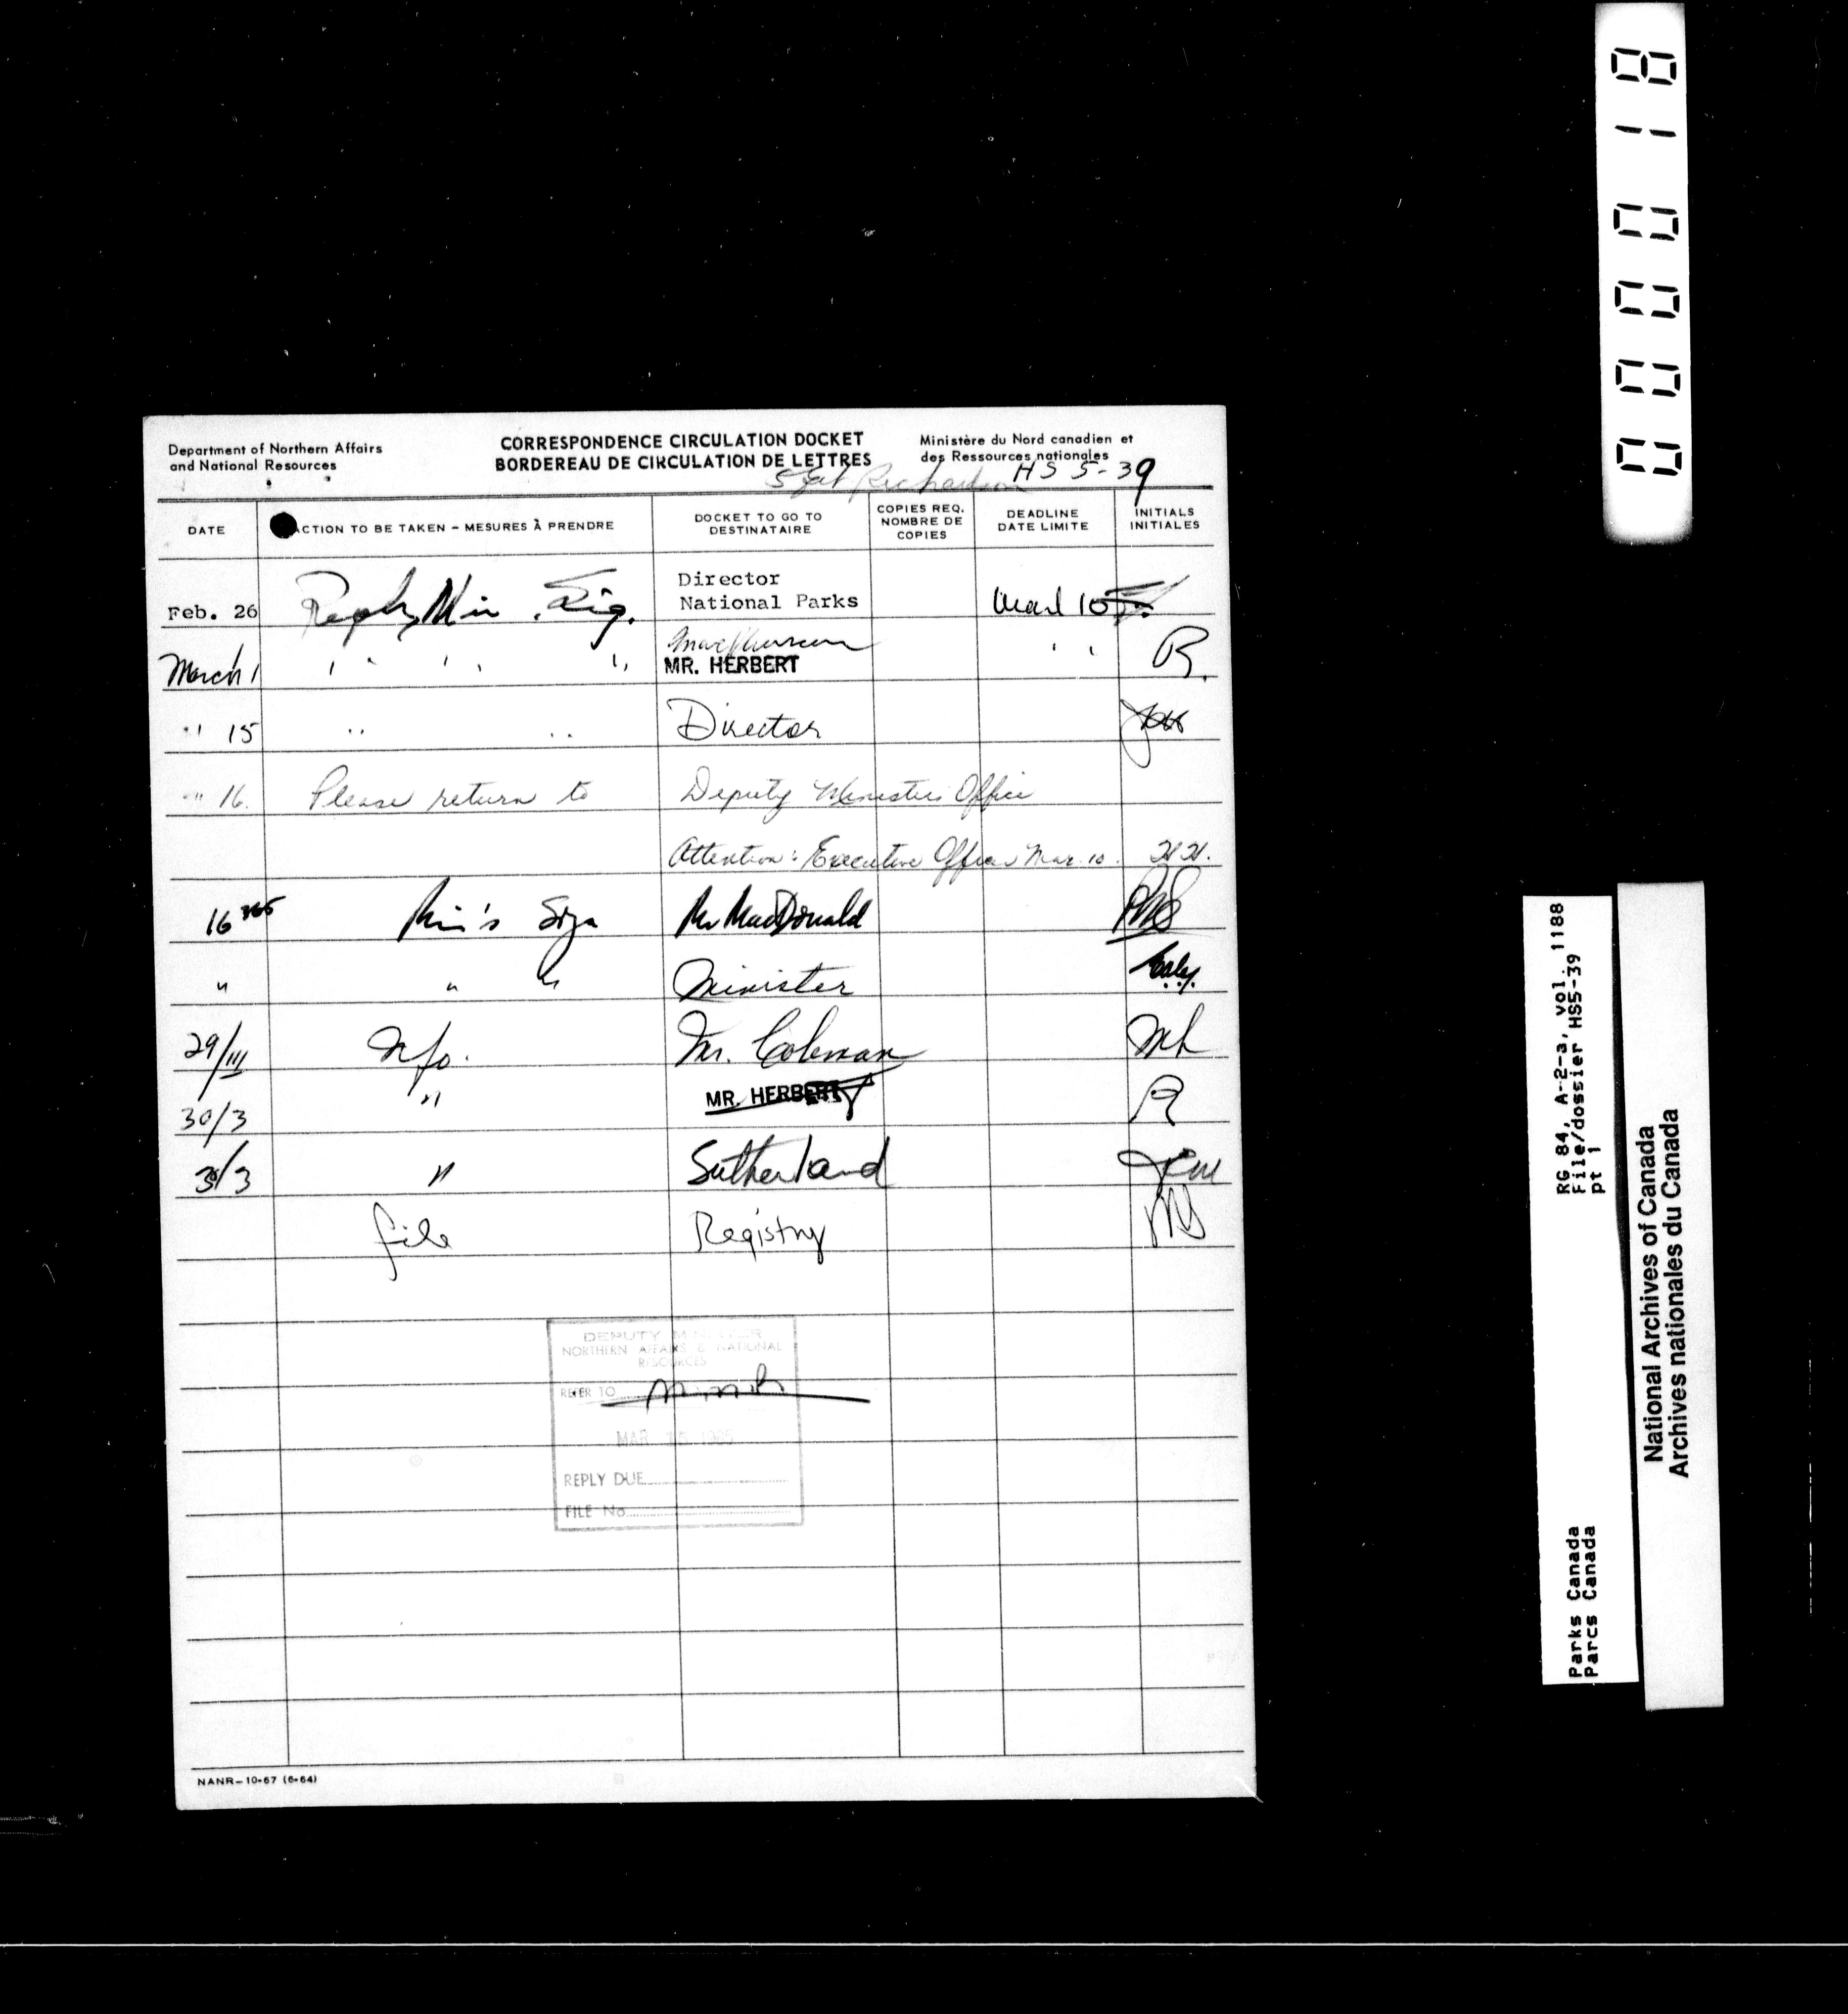 Department of Northern Affairs
and National Resources
CORRESPONDENCE CIRCULATION DOCKET
BORDEREAU DE CIRCULATION DE LETTRES
Ministère du Nord canadien et
des Ressources nationales
Richardson HS 5-39
DATE
ACTION TO BE TAKEN – MESURES À PRENDRE
DOCKET TO GO TO
DESTINATAIRE
COPIES REQ.
NOMBRE DE
COPIES
DEADLINE
DATE LIMITE
INITIALS
INITIALES
Feb. 26 Reply Min. Sig. Director
National Parks 10
March 1 " " " MR. HERBERT " "
" 15 " " Director
" 16. Please return to Deputy Ministers Office
Attention: Executive Officer Mar. 10.
16 Min's Sig Mr MacDonald
" " " Minister
29/III Info. Mr. Coleman
30/3 " MR. HERBERT
" Sutherland
file Registry
DEPUTY MINISTER
NORTHERN AFFAIRS & NATIONAL
RESOURCES
REFER TO
MAR 1965
REPLY DUE
FILE No.
NANR-10-67 (6-64)
000018
RG 84, A-2-a, vol. 1188
File/dossier HS5-39
pt 1
Parks Canada
Parcs Canada
National Archives of Canada
Archives nationales du Canada